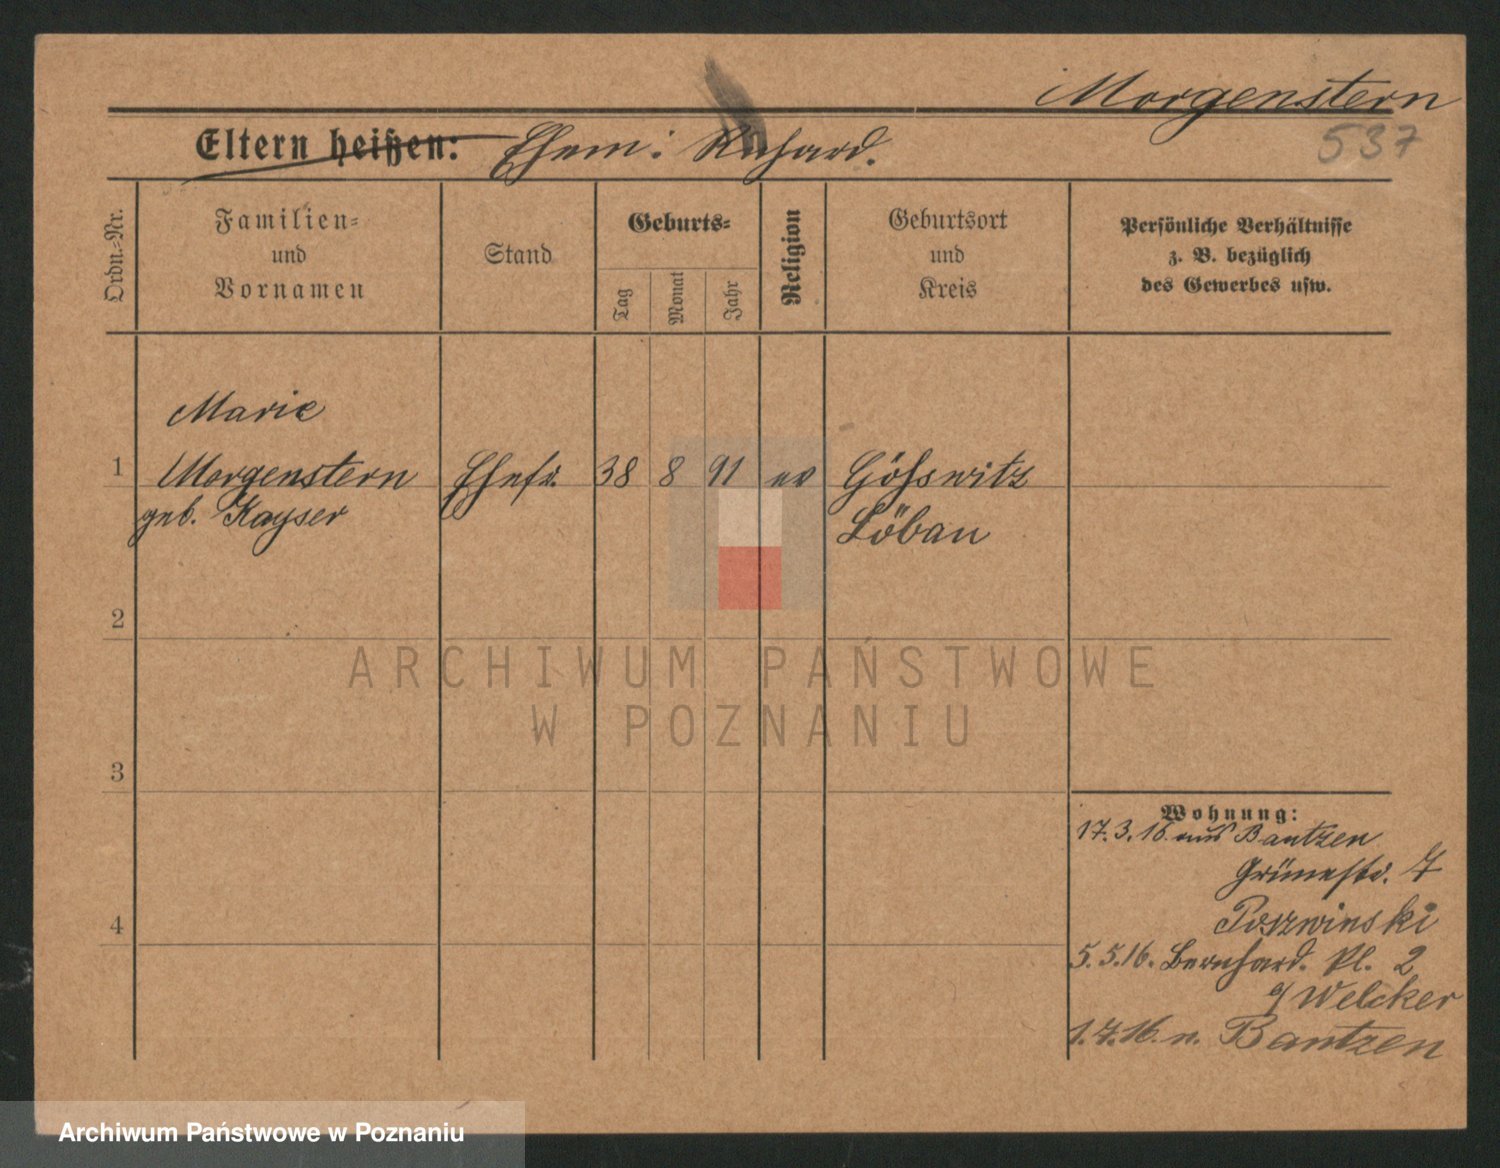 Morgenstern
537
Eltern heißen: Ehem: Richard.
Ordn.=Nr.
Familien=
und
Vornamen
Stand
Geburts=
Tag
Monat
Jahr
Religion
Geburtsort
und
Kreis
Persönliche Verhältnisse
z. B. bezüglich
des Gewerbes usw.
Marie
1 Morgenstern Ehefr. 38 8 91 ev Gößwitz
geb. Kayser Löbau
2
ARCHIWUM PAŃSTWOWE
W POZNANIU
3
Wohnung:
17.3.16. aus Bautzen
Grünestr. 7
Poszwinski
4
5.5.16. Bernhard. Pl. 2
b/ Welcker
1.7.16. n. Bautzen
Archiwum Państwowe w Poznaniu